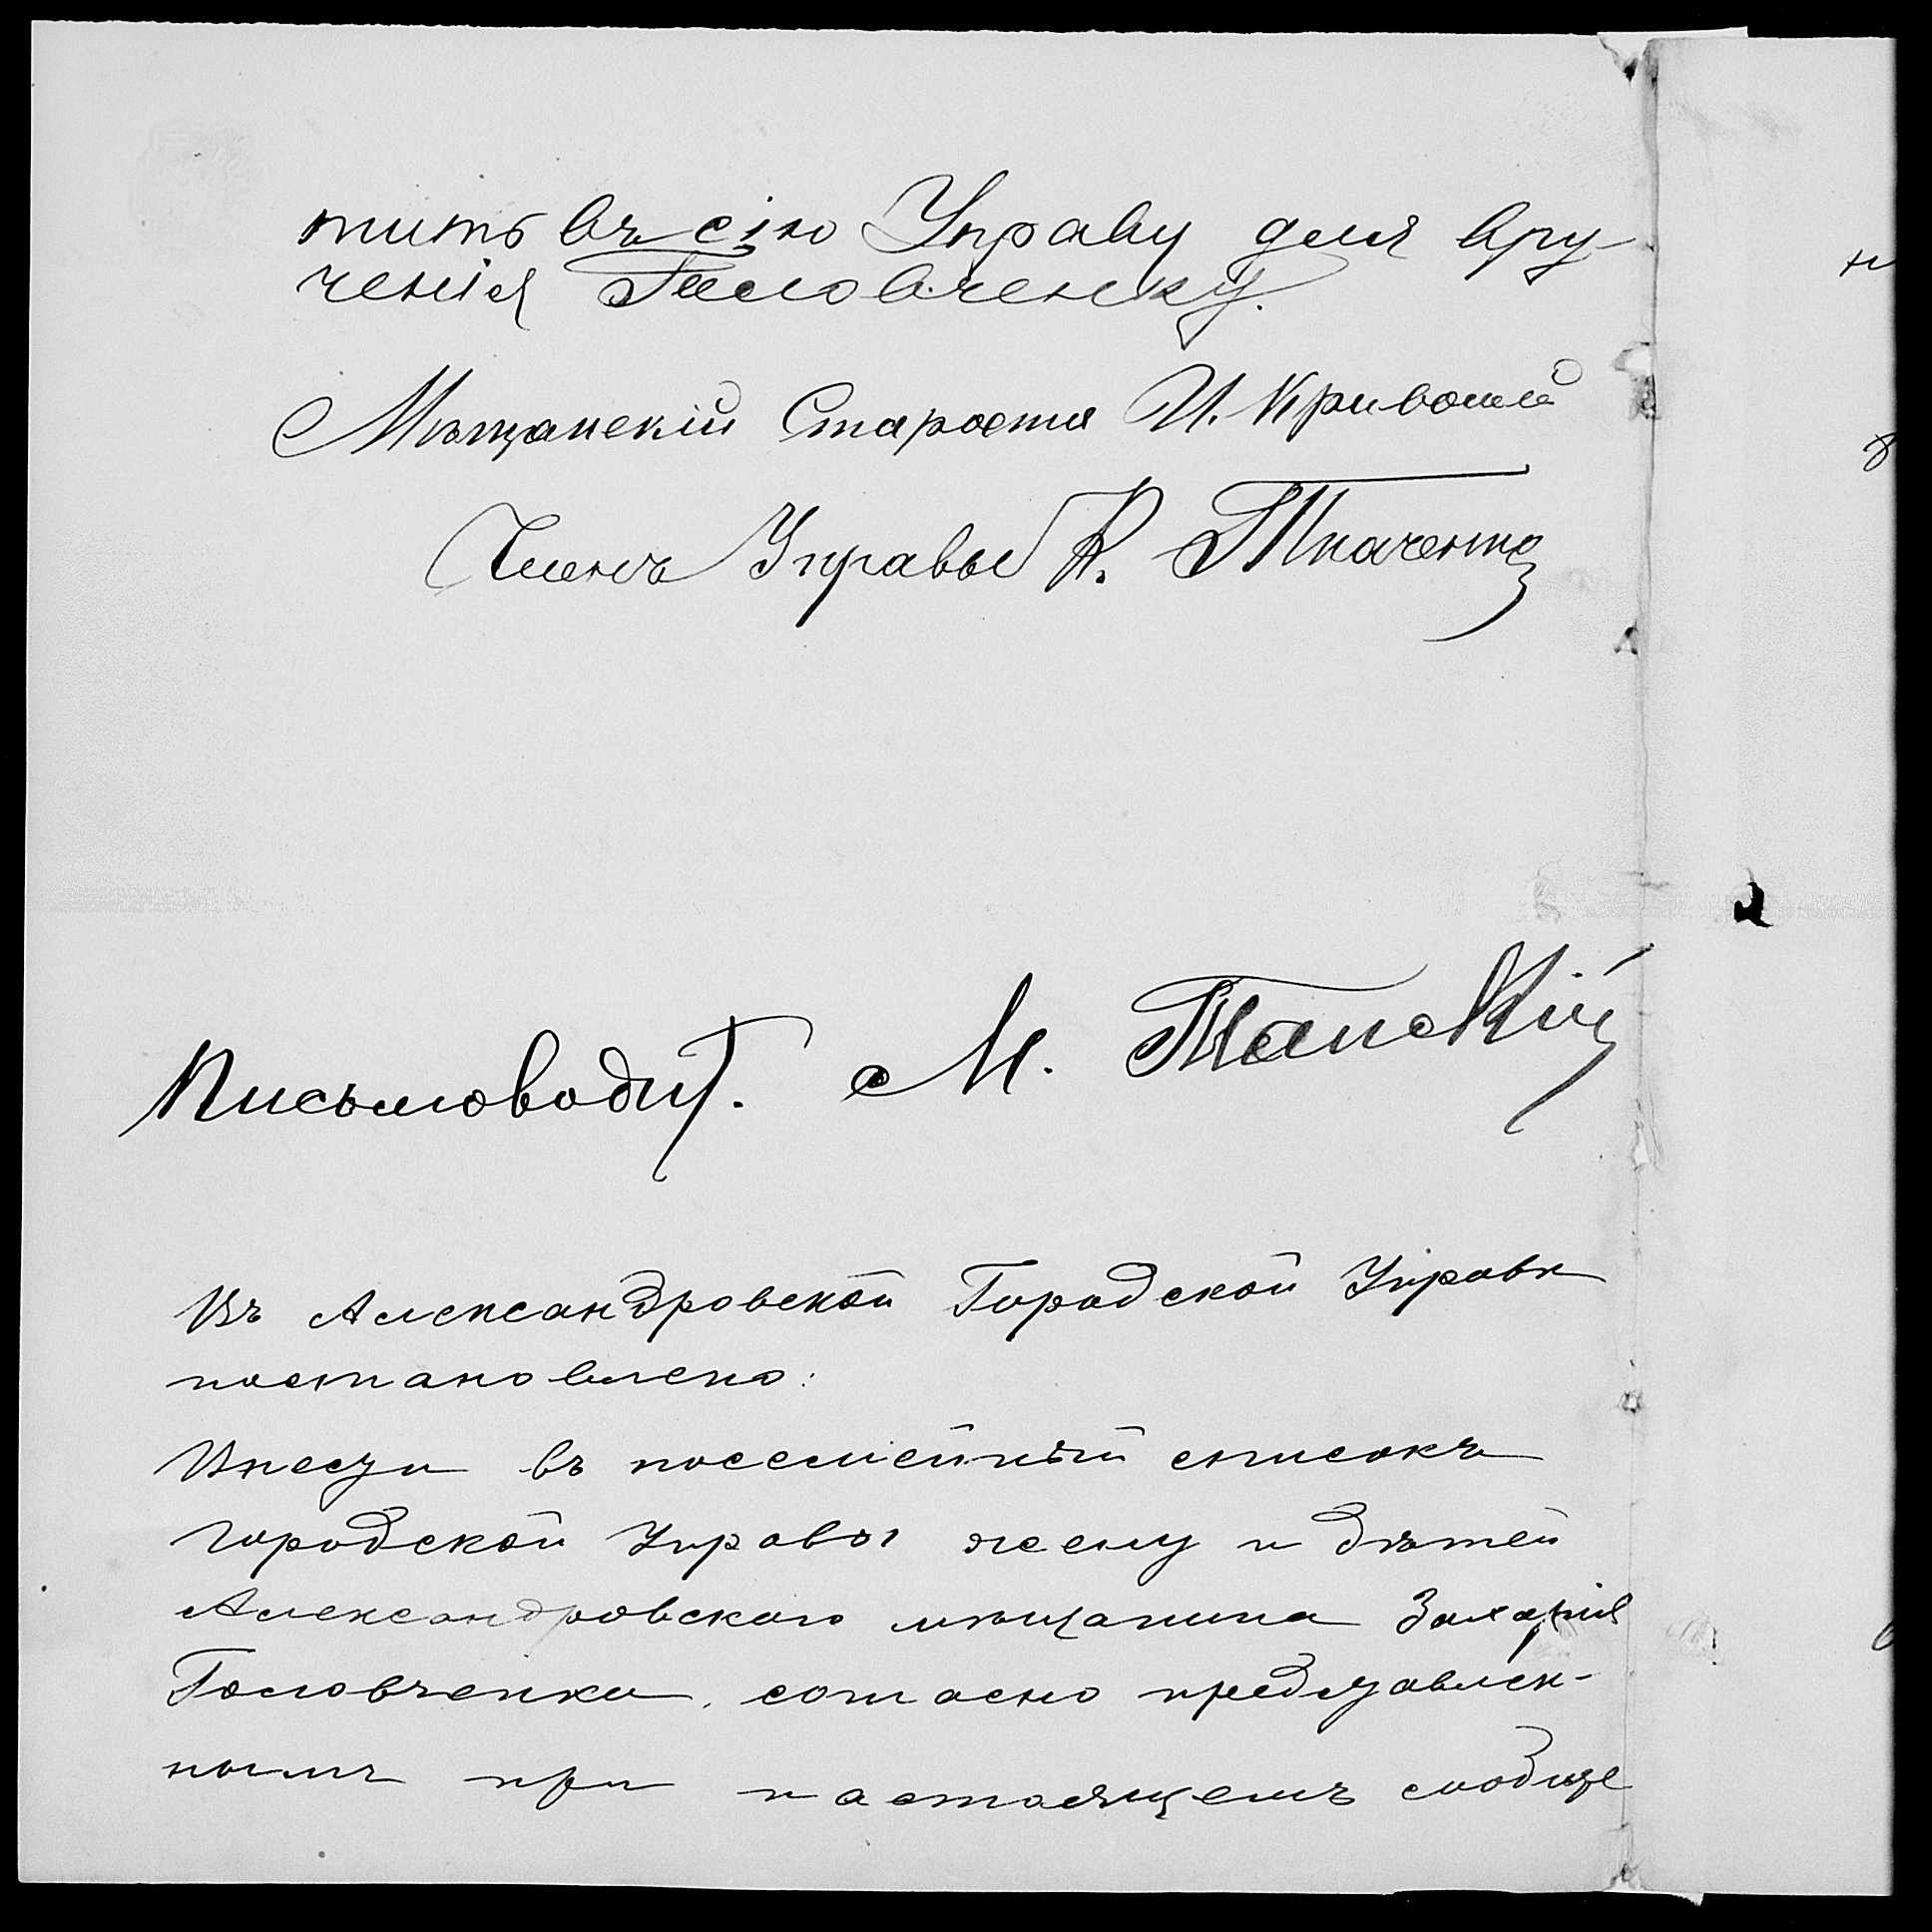 тить въ сію Управу для вру-
ченія Головченку.
Мѣщанскій Староста И. Кривошей
Членъ Управы К. Ткаченко
Письмоводит. М. Танскій
Въ Александровской Городской Управѣ
постановлено:
Внести въ посемейный списокъ
Городской Управы жену и дѣтей
Александровскаго мѣщанина Захарія
Головченка, согласно представлен-
нымъ при настоящемъ